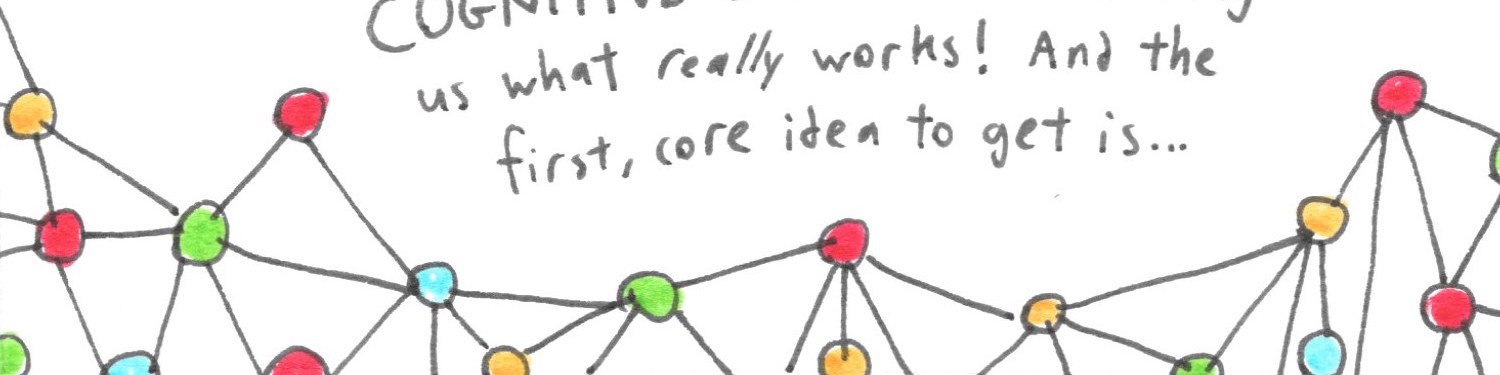 us what really works! And the
first, core idea to get is...